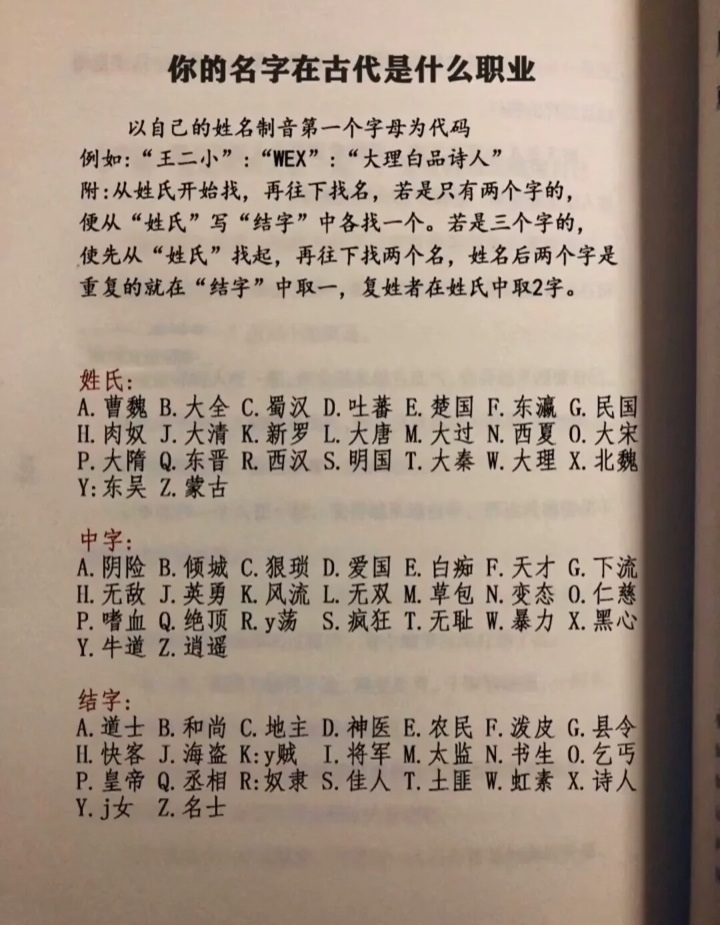 你的名字在古代是什么职业
以自己的姓名制音第一个字母为代码
例如:“王二小”:“WEX”:“大理白品诗人”
附:从姓氏开始找，再往下找名，若是只有两个字的，
便从“姓氏”写“结字”中各找一个。若是三个字的，
使先从“姓氏”找起，再往下找两个名，姓名后两个字是
重复的就在“结字”中取一，复姓者在姓氏中取2字。
姓氏:
A.曹魏 B.大全 C.蜀汉 D.吐蕃 E.楚国 F.东瀛 G.民国
H.肉奴 J.大清 K.新罗 L.大唐 M.大过 N.西夏 O.大宋
P.大隋 Q.东晋 R.西汉 S.明国 T.大秦 W.大理 X.北魏
Y:东吴 Z.蒙古
中字:
A.阴险 B.倾城 C.狠琐 D.爱国 E.白痴 F.天才 G.下流
H.无敌 J.英勇 K.风流 L.无双 M.草包 N.变态 O.仁慈
P.嗜血 Q.绝顶 R.y荡 S.疯狂 T.无耻 W.暴力 X.黑心
Y.牛道 Z.逍遥
结字:
A.道士 B.和尚 C.地主 D.神医 E.农民 F.泼皮 G.县令
H.快客 J.海盗 K:y贼 I.将军 M.太监 N.书生 O.乞丐
P.皇帝 Q.丞相 R:奴隶 S.佳人 T.土匪 W.虹素 X.诗人
Y.j女 Z.名士